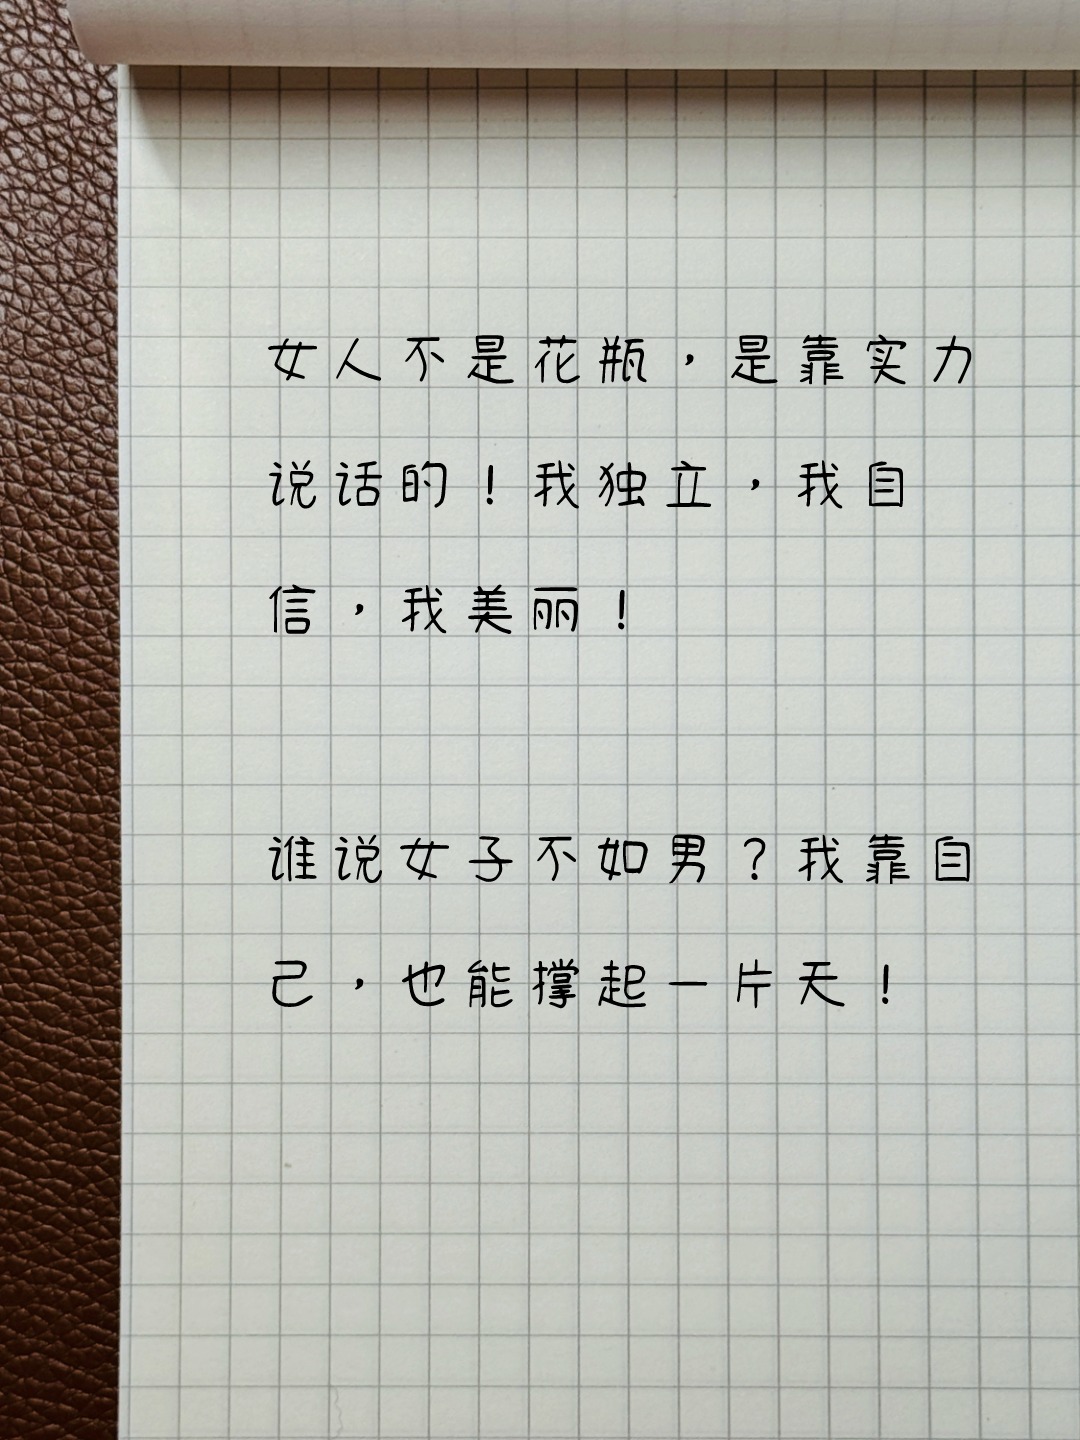 女人不是花瓶，是靠实力
说话的！我独立，我自
信，我美丽！
谁说女子不如男？我靠自
己，也能撑起一片天！